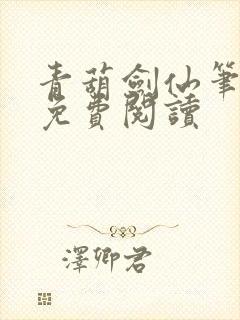 青葫劍仙筆
免費閱讀
澤卿君